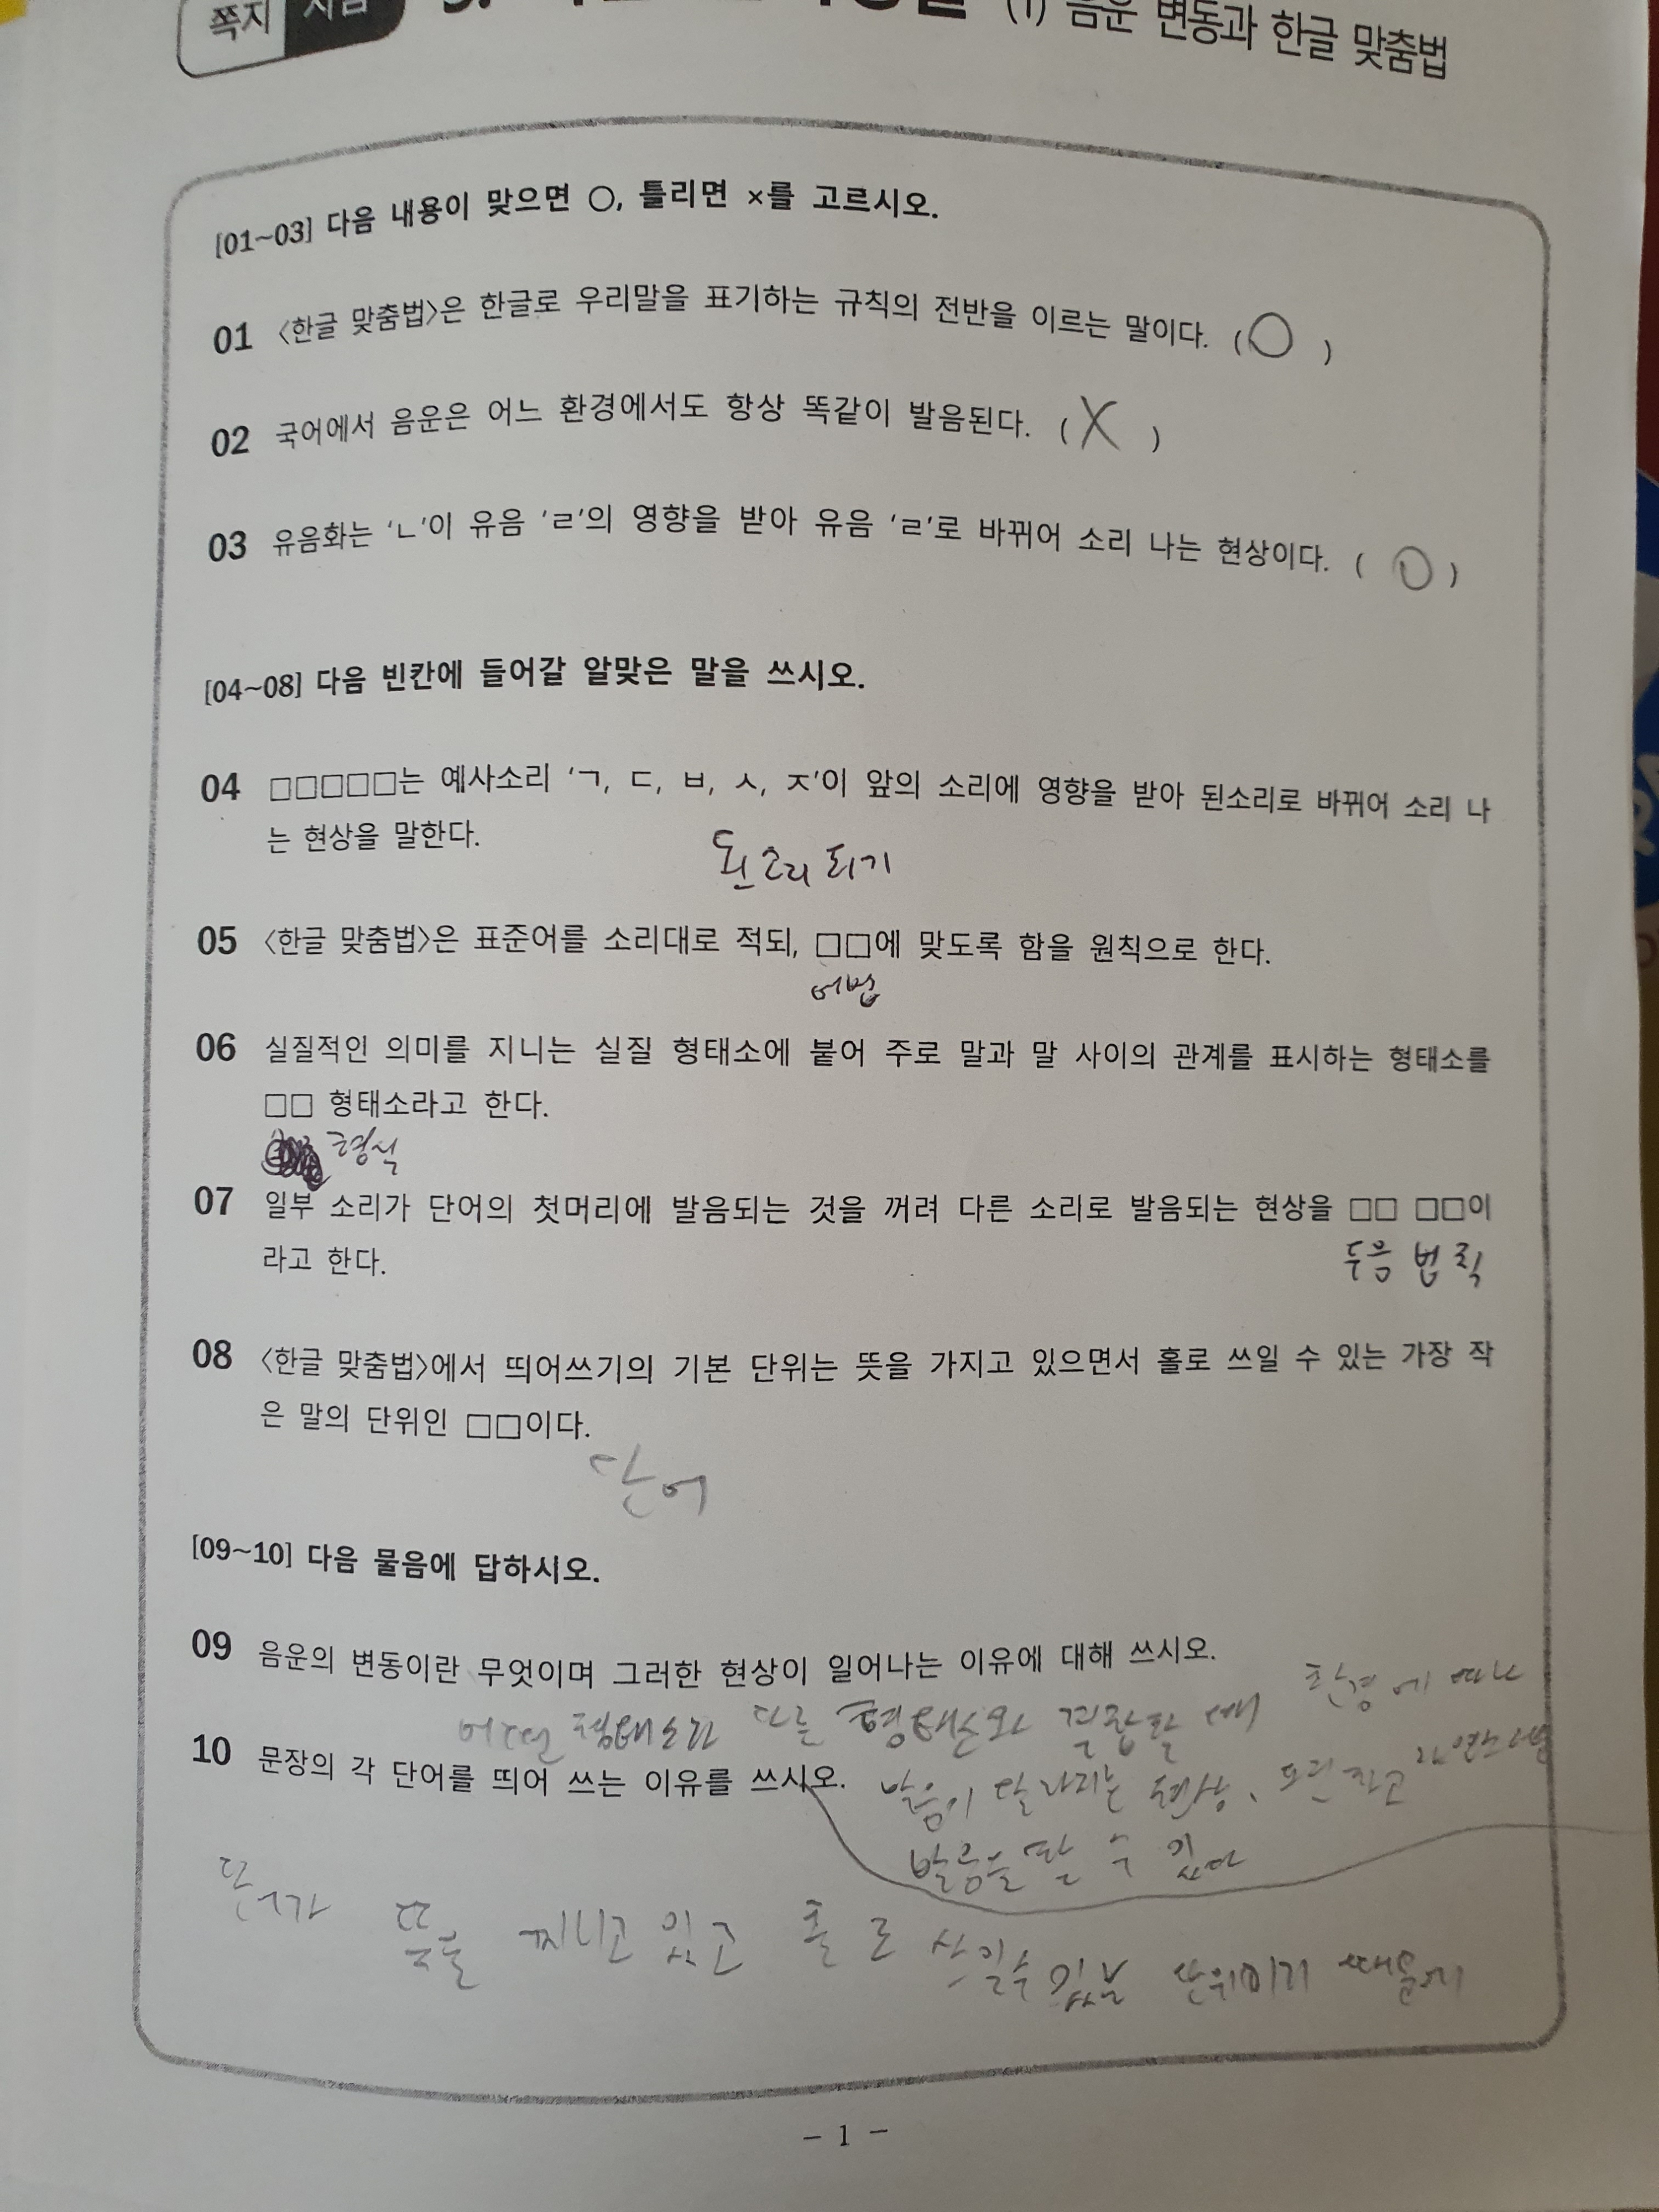 쪽지
(1) 음운 변동과 한글 맞춤법
[01~03] 다음 내용이 맞으면 ○, 틀리면 ×를 고르시오.
01 〈한글 맞춤법〉은 한글로 우리말을 표기하는 규칙의 전반을 이르는 말이다. ( ○ )
02 국어에서 음운은 어느 환경에서도 항상 똑같이 발음된다. ( X )
03 유음화는 ‘ㄴ’이 유음 ‘ㄹ’의 영향을 받아 유음 ‘ㄹ’로 바뀌어 소리 나는 현상이다. ( ○ )
[04~08] 다음 빈칸에 들어갈 알맞은 말을 쓰시오.
04 □□□□□는 예사소리 ‘ㄱ, ㄷ, ㅂ, ㅅ, ㅈ’이 앞의 소리에 영향을 받아 된소리로 바뀌어 소리 나
는 현상을 말한다.
된소리되기
05 〈한글 맞춤법〉은 표준어를 소리대로 적되, □□에 맞도록 함을 원칙으로 한다.
어법
06 실질적인 의미를 지니는 실질 형태소에 붙어 주로 말과 말 사이의 관계를 표시하는 형태소를
□□ 형태소라고 한다.
형식
07 일부 소리가 단어의 첫머리에 발음되는 것을 꺼려 다른 소리로 발음되는 현상을 □□ □□이
라고 한다.
두음 법칙
08 〈한글 맞춤법〉에서 띄어쓰기의 기본 단위는 뜻을 가지고 있으면서 홀로 쓰일 수 있는 가장 작
은 말의 단위인 □□이다.
단어
[09~10] 다음 물음에 답하시오.
09 음운의 변동이란 무엇이며 그러한 현상이 일어나는 이유에 대해 쓰시오.
어떤 형태소가 다른 형태소와 결합할 때 환경에 따라
10 문장의 각 단어를 띄어 쓰는 이유를 쓰시오.
발음이 달라지는 현상,
발음을 할 수 있다
단어가 뜻을 찌니고 있고 홀로 쓰일수 있는 단위이기 때문에
- 1 -